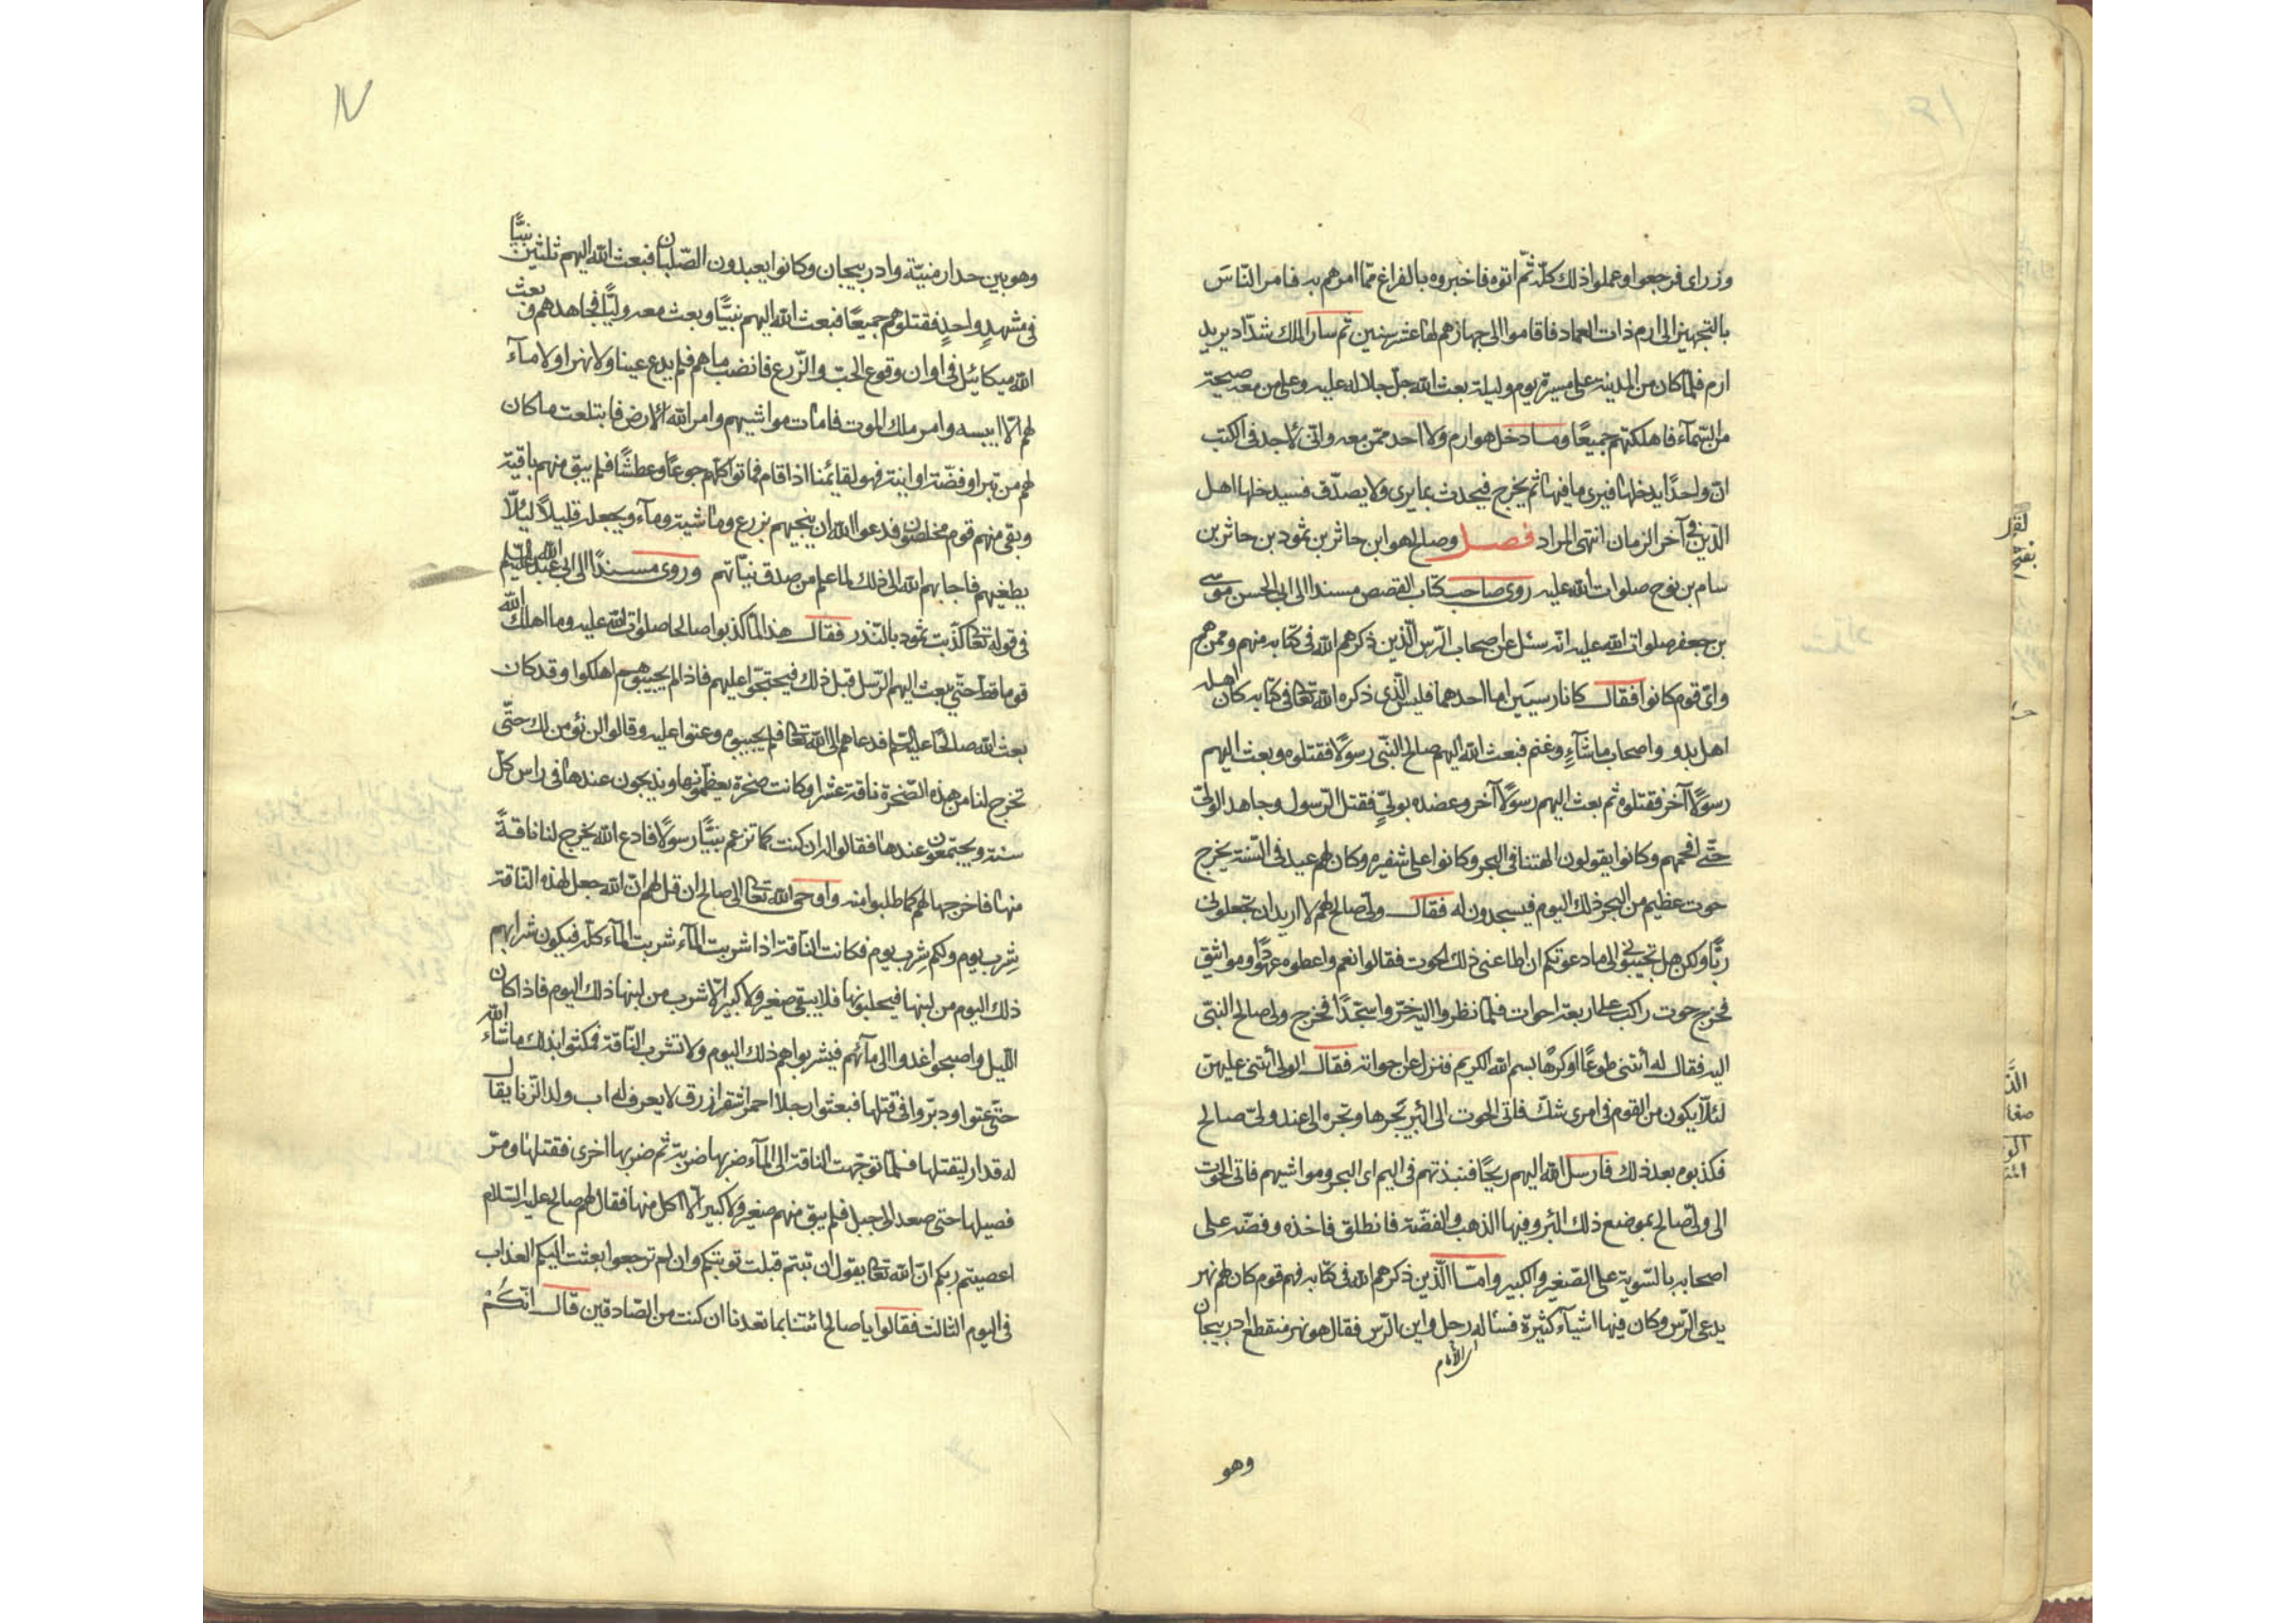 وزرای فرجعوا وعملوا ذلك كلّه ثمّ اتوه فاخبروه بالفراغ ممّا امرهم به فامر النّاسَ
بالتجهيز الى ارم ذات العماد فاقاموا الى جهازهم لها عشر سنين ثم سار الملك شدّاد يريد
ارم فلمّا كان من المدينة على مسيرة يوم وليلة بعث الله جلّ جلاله عليه وعلى من معه صيحة
من السّمآء فاهلكتهم جميعًا وما دخل هو ارم ولا احد ممّن معه وانّى لاجد فى الكتب
انّ واحدًا يدخلها فيرى ما فيها ثم يخرج فيحدث بما يرى ولا يصدّق فسيدخلها اهل
الدّين فى آخر الزمان انتهى المراد فصل وصالح هو ابن حاثر بن ثمود بن حاثر بن
سام بن نوح صلوات الله عليه روى صاحب كتاب القصص مسندا الى ابى الحسن موسى
بن جعفر صلوات الله عليه انّه سئل عن اصحاب الرّس الّذين ذكرهم الله فى كتابه منهم وممن هم
واىّ قوم كانوا فقال كانا رسيَين اما احدهما فليس الّذى ذكره الله تعالى فى كتابه كان اهله
اهل بدو واصحاب ماشآءٍ وغنم فبعث الله اليهم صالح النّبى رسولًا فقتلوه وبعث اليهم
رسولًا آخر فقتلوه ثم بعث اليهم رسولًا آخر وعضده بولىّ فقتل الرّسول وجاهد الولىّ
حتّى افحمهم وكانوا يقولون الهتنا فى البحر وكانوا على شفيره وكان لهم عيد فى السّنة يخرج
حوت عظيم من البحر ذلك اليوم فيسجدون له فقال ولىّ صالح لهم لا اريد ان تجعلونى
ربًّا ولكن هل تجيبونى الى ما دعوتكم ان اطاعنى ذلك الحوت فقالوا نعم واعطوه عهودًا ومواثيق
فخرج حوت راكب على اربعة احوات فلمّا نظروا اليه خرّوا سجّدًا فخرج ولى صالح النبّى
اليه فقال له أئتنى طوعًا او كرهًا بسم الله الكريم فنزل عن احواته فقال الولى أئتنى عليهنّ
لئلّا يكون من القوم فى امرى شكّ فاتى الحوت الى البرّ يجرها وتجره الى عند ولىّ صالح
فكذبوه بعد ذلك فارسل الله اليهم ريحًا فنبذتهم فى اليم اى البحر ومواشيهم فاتى الحوت
الى ولىّ صالح بموضع ذلك البئر وفيها الذهب والفضّة فانطلق فاخذه وفضّه على
اصحابه بالسّوية على الصّغير والكبير وامّا الّذين ذكرهم الله فى كتابه فهم قوم كان لهم نهر
يدعى الرّس وكان فيها اشيآء كثيرة فسأله رجل واين الرّس فقال هو نهر منقطع ادربيجان
وهو
١٧
وهو بين حد ارمنيّة وادربيجان وكانوا يعبدون الصّلبان فبعث الله اليهم ثلثين نبيًّا
فى مشهدٍ واحدٍ فقتلوهم جميعًا فبعث الله اليهم نبيًّا وبعث معه وليًّا فجاهدهم وبعث
الله ميكائيل فى اوان وقوع الحبّ والزّرع فانضب ماهم فلم يدع عينا ولا نهرا ولا مآء
لهم الّا ايبسه وامر ملك الموت فامات مواشيهم وامر الله الارض فابتلعت ما كان
لهم من تبر او فضّة او انية فهو لقائمنا اذا قام فماتوا كلّهم جوعًا وعطشًا فلم يبق منهم باقية
وبقى منهم قوم مخلصون فدعوا الله ان ينجيهم بزرع وماشية ومآء ويجعله قليلًا ليلّا
يطغيهم فاجابهم الله الى ذلك لما علم من صدق نيّاتهم وروى مسندًا الى ابى عبد الله عليه السّلام
فى قوله تعالى كذّبت ثمود بالنّذر فقال هذا لمّا كذبوا صالحا صلوات الله عليه وما اهلك الله
قوما قطّ حتّى يبعث اليهم الرّسل قبل ذلك فيحتجّوا عليهم فاذا لم يجيبوهم اهلكوا وقد كان
بعث الله صالحًا عليه السّلم فدعاهم الى الله تعالى فلم يجيبوه وعتوا عليه وقالوا لن نؤمن لك حتّى
تخرج لنا من هذه الصّخرة ناقة عشرا وكانت صخرة يعظمونها ويذبحون عندها فى راس كلّ
سنة ويجتمعون عندها فقالوا له ان كنت كما تزعم نبيًّا رسولًا فادع الله يخرج لنا ناقةً
منها فاخرجها لهم كما طلبوا منه واوحى الله تعالى الى صالح ان قل لهم انّ الله جعل لهذه النّاقة
شِرب يوم ولكم شِرب يوم فكانت النّاقة اذا شربت المآء شربت المآء كلّه فيكون شرابهم
ذلك اليوم من لبنها فيحلبونها فلا يبقى صغير ولا كبير الّا شرب من لبنها ذلك اليوم فاذا كان
اللّيل واصبحوا غدوا الى مآئهم فيشربوا هم ذلك اليوم ولا تشرب النّاقة فمكثوا بذلك ماشاء الله
حتّى عتوا ودبّروا فى قتلها فبعثوا رجلا احمر اشقر ازرق لا يعرف له اب ولد الزّنا يقال
له قدار ليقتلها فلمّا توجّهت النّاقة الى المآء ضربها ضربة ثم ضربها اخرى فقتلها ومرّ
فصيلها حتى صعد الى جبل فلم يبق منهم صغير ولا كبير الّا اكل منها فقال لهم صالح عليه السّلام
اعصيتم ربكم انّ الله تعالى يقول ان تبتم قبلت توبتكم وان لم ترجعوا بعثت اليكم العذاب
فى اليوم الثالث فقالوا يا صالح ائتنا بما تعدنا ان كنت من الصّادقين قال انّكُمْ